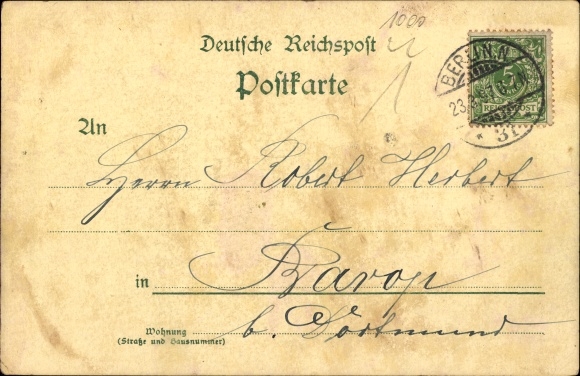 1000
Deutsche Reichspost
Postkarte
BERLIN N
5
REICHSPOST
* 31
An
Herrn Robert Herbert
in Barop
b. Dortmund
Wohnung
(Straße und Hausnummer)